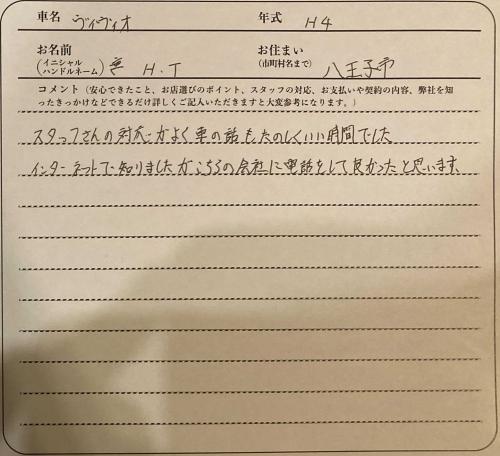 車名 ヴィヴィオ 年式 H4
お名前 お住まい
(イニシャル ハンドルネーム) H.T (市町村名まで) 八王子市
コメント(安心できたこと、お店選びのポイント、スタッフの対応、お支払いや契約の内容、弊社を知
ったきっかけなどできるだけ詳しくご記入いただきますと大変参考になります。)
スタッフさんの対応がよく車の話もたのしくいい時間でした
インターネットで知りましたがこちらの会社に電話をして良かったと思います。